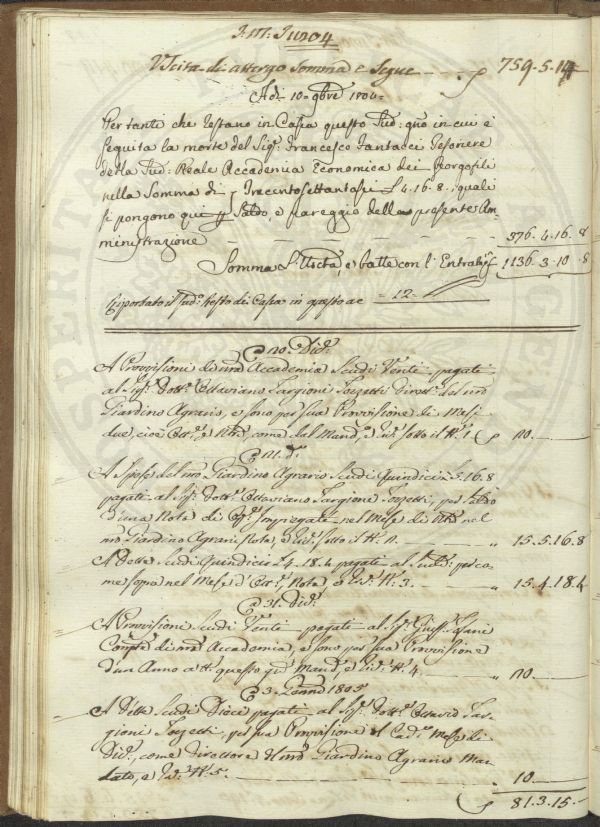 J: M: J: 1804
Uscita di attergo Somma e Segue 759.5.14
Adi 10 9bre 1804
Per tanti che restano in Cassa questo sud: gno in cui è
seguita la morte del Sigr. Francesco Fantacci Tesoriere
della Sud: Reale Accademia Economica dei Georgofili
nella Somma di Trecentosettantasei £ 4.16.8. quali
si pongono qui Saldo, e pareggio della presente Am
ministrazione 376.4.16.8
Somma l'Uscita, e batte con l'Entrata 1136.3.10.8
Riportato il sud: resto di Cassa in questo a 12
20. Dice.
A Provvisioni di nra Accademia Scudi Venti pagati
al Sigr. Dottr. Ottaviano Targioni Tozzetti Dirett. del nro
Giardino Agrario, e sono per sua Provvisione di Mesi
due cioè Ottre, e Nbre, come dal Mando, e Rica. sotto il No. 1 20.
21. do.
A Spese del nro Giardino Agrario Scudi Quindici £ 5.16.8
pagati al Sigr. Dottr. Ottaviano Targioni Tozzetti, per Saldo
d'una Nota di impiegate nel Mese di Nbre nel
nro Giardino Agrario Nota, e Rica. sotto il No. 2. 15.5.16.8
A Dette Scudi Quindici £ 4.18.4 pagati al Sud. per co
me sopra nel Mese d'Ottre, Nota, e Rica. No. 3. 15.4.18.4
31. Dice.
A Provvisioni Scudi Venti pagati al Sigr. Giusep.
Compta. di nra Accademia, e sono per sua Provvisione
d'un Anno a tto questo gno Mando, e Rica. No. 4. 20.
3. Genno 1805
A Dette Scudi Dieci pagati al Sigr. Dottr. Ottavio Tar
gioni Tozzetti, per sua Provvisione del Caduto Mese di
Dice, come Direttore del nro Giardino Agrario Man
dato, e Rica. No. 5. 10.
81.3.15.